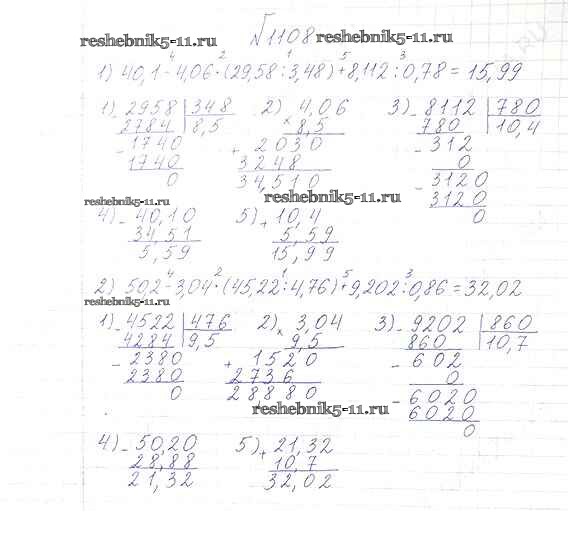 reshebnik5-11.ru №1108 reshebnik5-11.ru
4 2 1 5 3
1) 40,1-4,06·(29,58:3,48)+8,112:0,78=15,99
1) - 2958 | 348 2) 4,06 3) - 8112 | 780
2784 | 8,5 × 8,5 780 | 10,4
- 1740 + 2030 - 312
1740 3248 0
0 34,510 - 3120
3120
0
reshebnik5-11.ru reshebnik5-11.ru
4) - 40,10 5) + 10,4
34,51 5,59
5,59 15,99
4 2 1 5 3
2) 50,2-3,04·(45,22:4,76)+9,202:0,86=32,02
reshebnik5-11.ru
1) - 4522 | 476 2) × 3,04 3) - 9202 | 860
4284 | 9,5 9,5 860 | 10,7
- 2380 + 1520 - 602
2380 2736 0
0 28880 - 6020
6020
0
reshebnik5-11.ru
4) - 50,20 5) + 21,32
28,88 10,7
21,32 32,02